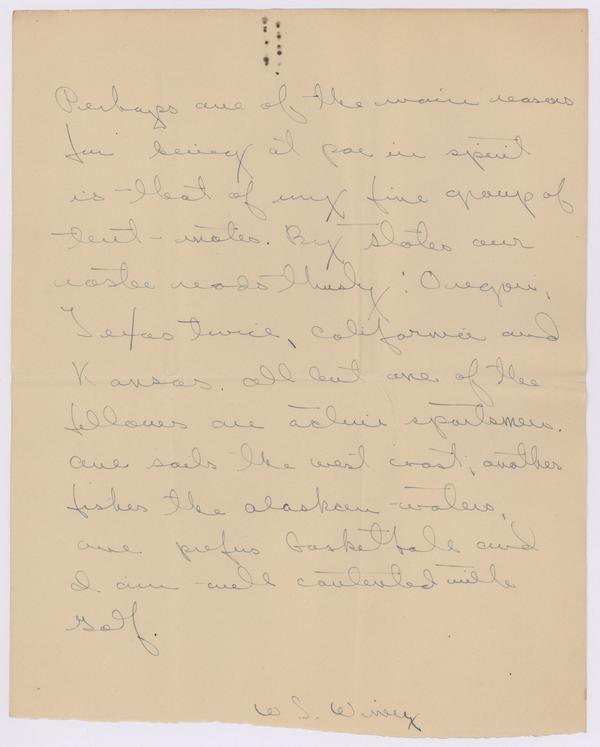 Perhaps one of the main reasons
for being at par in spirit
is that of my fine group of
tent-mates. By states our
roster reads thusly: Oregon,
Texas twice, California and
Kansas. All but one of the
fellows are active sportsmen.
One sails the west coast, another
fishes the alaskan waters,
one prefers basketball and
I am well contented with
golf.
W S.